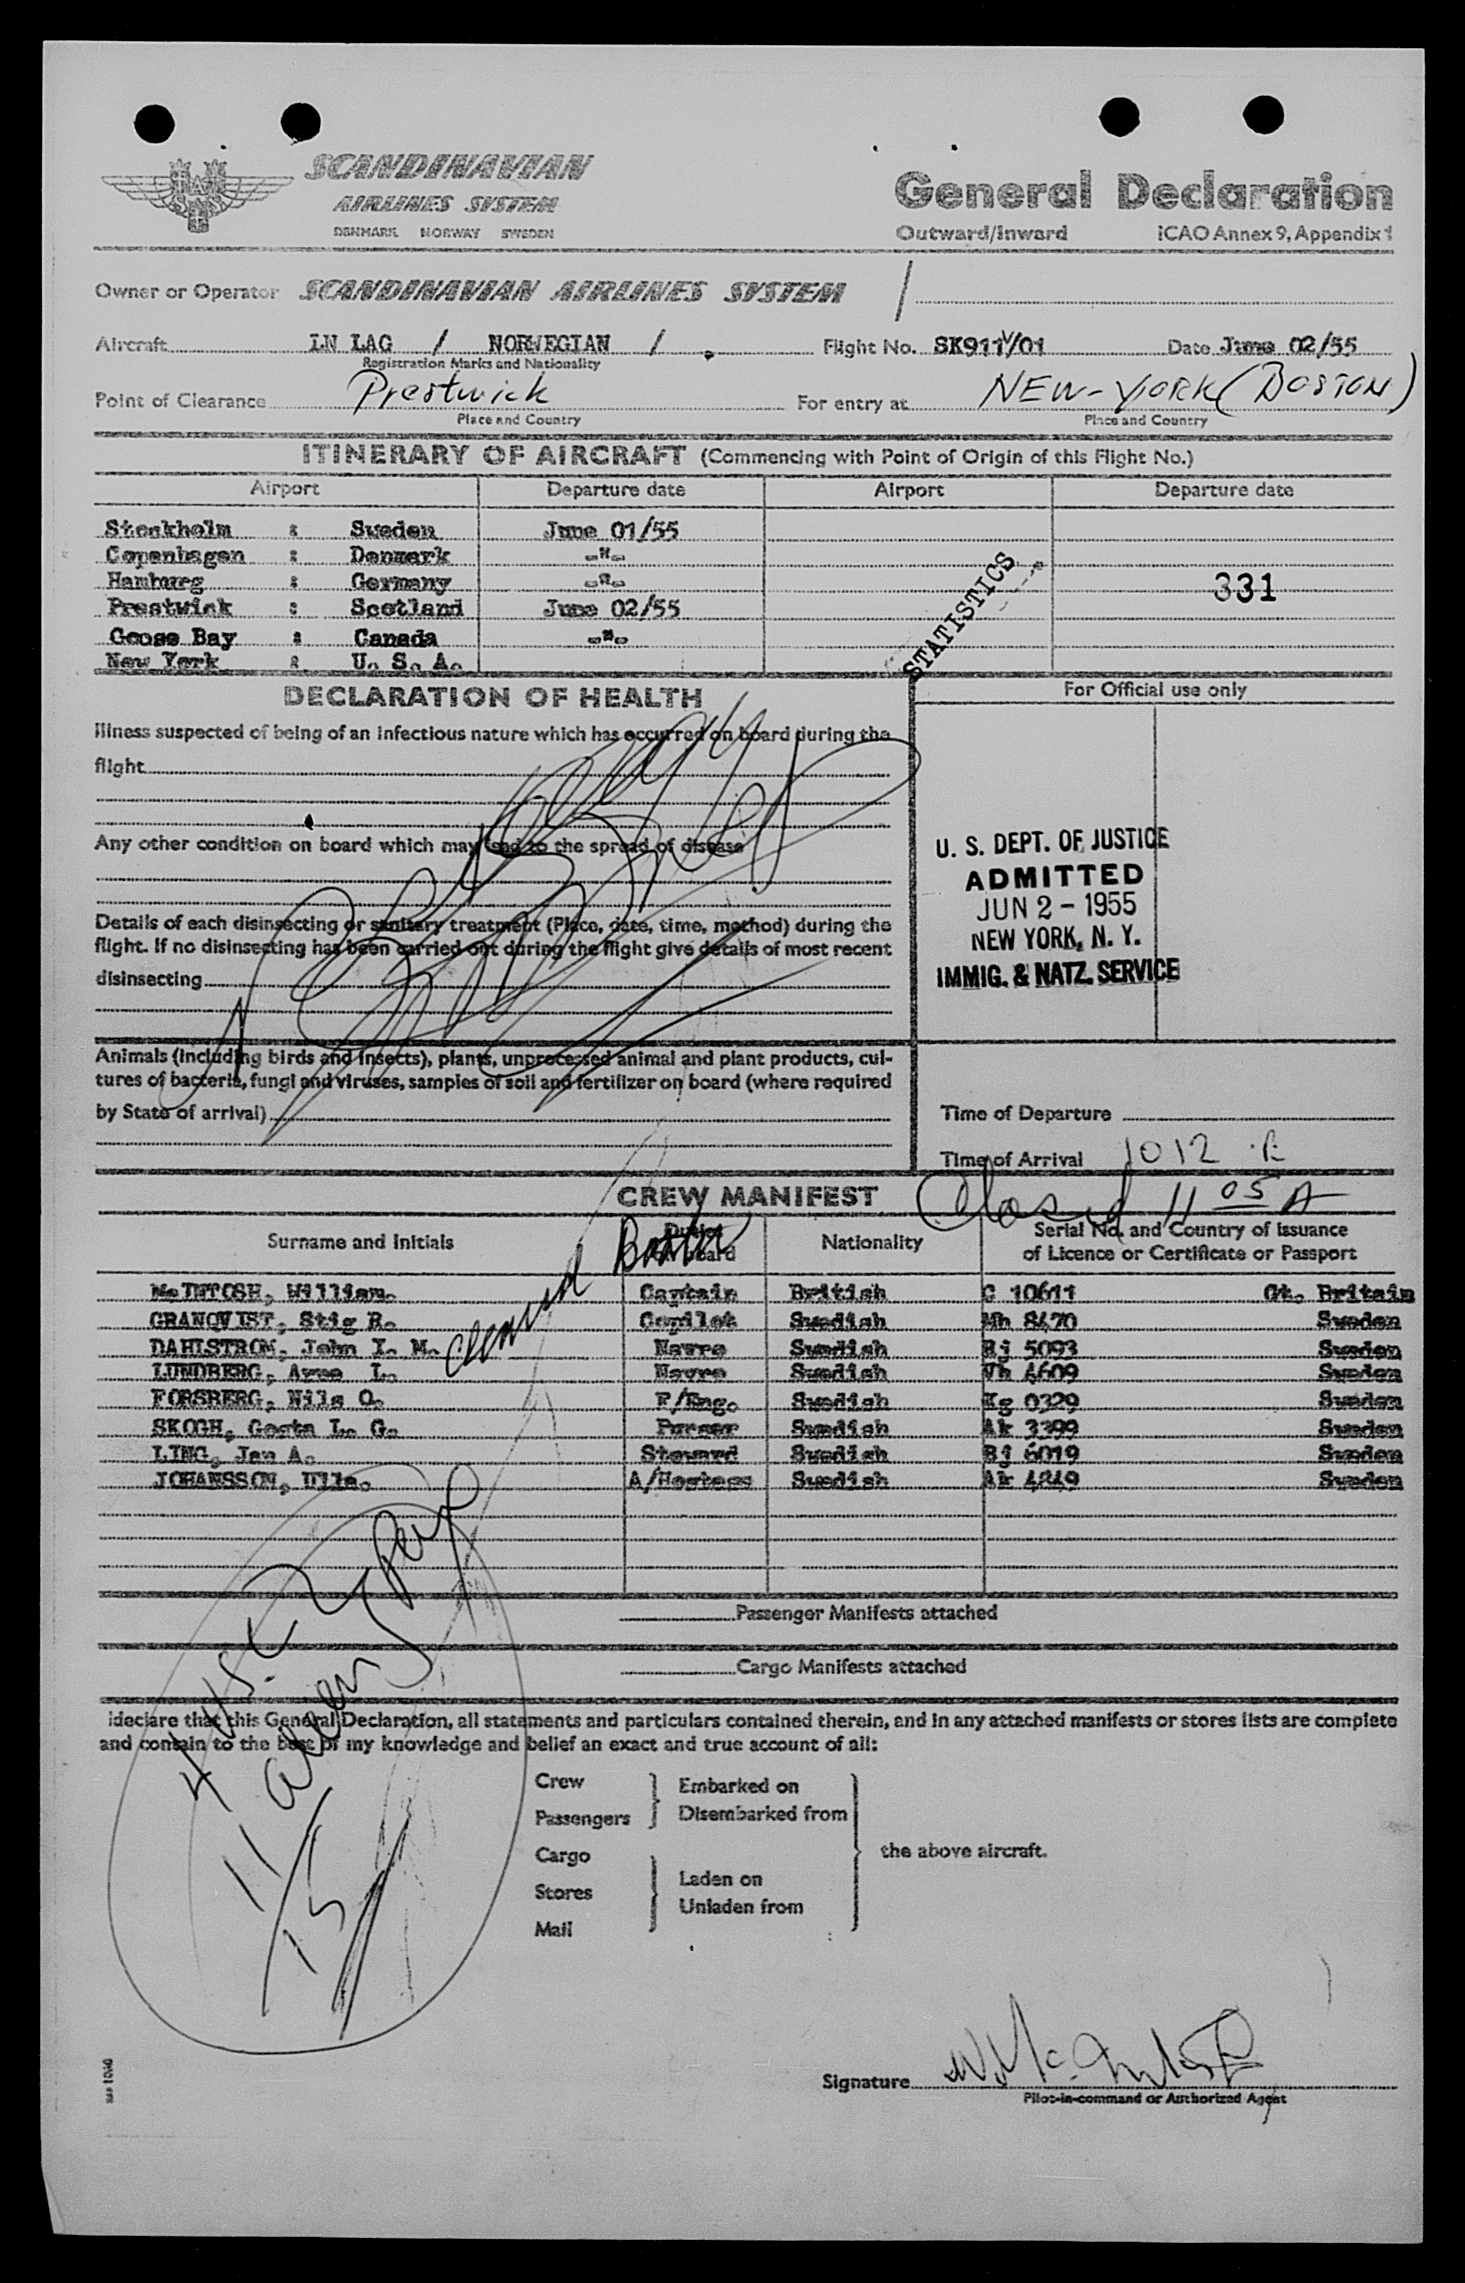 SCANDINAVIAN
AIRLINES SYSTEM
DENMARK NORWAY SWEDEN
General Declaration
Outward/Inward ICAO Annex 9, Appendix 1
Owner or Operator SCANDINAVIAN AIRLINES SYSTEM /
Aircraft LN LAG / NORWEGIAN / . Flight No. SK911/01 Date June 02/55
Registration Marks and Nationality
Point of Clearance Prestwick For entry at NEW-YORK (BOSTON)
Place and Country Place and Country
ITINERARY OF AIRCRAFT (Commencing with Point of Origin of this Flight No.)
Airport Departure date Airport Departure date
Stockholm : Sweden June 01/55
Copenhagen : Denmark -"-
Hamburg : Germany -"-
331
Prestwick : Scotland June 02/55
Goose Bay : Canada -"-
New York : U. S. A.
STATISTICS
DECLARATION OF HEALTH
For Official use only
Illness suspected of being of an infectious nature which has occurred on board during the
flight
Any other condition on board which may lead to the spread of disease
Details of each disinsecting or sanitary treatment (Place, date, time, method) during the
flight. If no disinsecting has been carried out during the flight give details of most recent
disinsecting
U. S. DEPT. OF JUSTICE
ADMITTED
JUN 2 - 1955
NEW YORK, N. Y.
IMMIG. & NATZ. SERVICE
Animals (including birds and insects), plants, unprocessed animal and plant products, cul-
tures of bacteria, fungi and viruses, samples of soil and fertilizer on board (where required
by State of arrival)
Time of Departure
Time of Arrival 1012
Closed 11 05 A
CREW MANIFEST
Surname and Initials Duties on board Nationality Serial No. and Country of issuance
of Licence or Certificate or Passport
Cleared Boston
McINTOSH, William. Captain British C 10611 Gt. Britain
GRANQVIST, Stig B. Copilot Swedish Mh 8470 Sweden
DAHLSTROM, John I. M. Navro Swedish Bj 5093 Sweden
LUNDBERG, Arne L. Navro Swedish Vh 4609 Sweden
FORSBERG, Nils O. F/Eng. Swedish Kg 0329 Sweden
SKOGH, Gosta L. G. Purser Swedish Ak 3399 Sweden
LING, Jan A. Steward Swedish Bj 6019 Sweden
JOHANSSON, Ulla. A/Hostess Swedish Ak 4849 Sweden
Passenger Manifests attached
Cargo Manifests attached
I declare that this General Declaration, all statements and particulars contained therein, and in any attached manifests or stores lists are complete
and contain to the best of my knowledge and belief an exact and true account of all:
4 USC
11 alien
15
Crew Embarked on
Passengers Disembarked from
Cargo the above aircraft.
Stores Laden on
Mail Unladen from
Signature W. McIntosh
Pilot-in-command or Authorized Agent